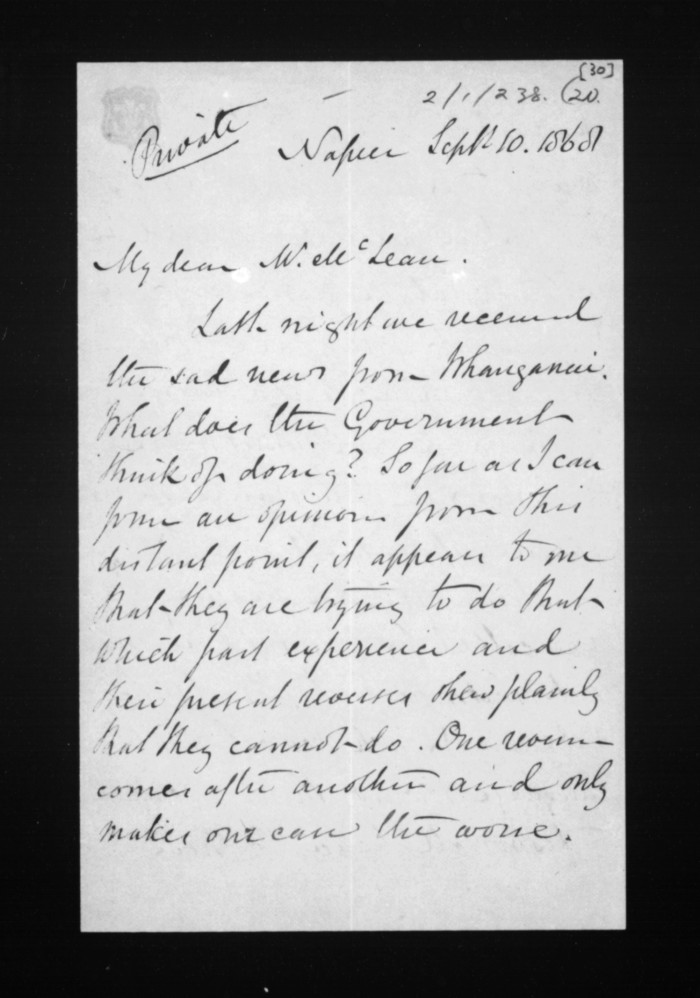 [30]
2/1/238. (20.
Private
Napier Sept 10. 1868
My dear Mr. McLean.
Last night we received
the sad news from Whanganui.
What does the Government
think of doing? So far as I can
form an opinion from this
distant point, it appears to me
that they are trying to do that
which past experience and
their present reverses shew plainly
that they cannot do. One reverse
comes after another and only
makes our case the worse.